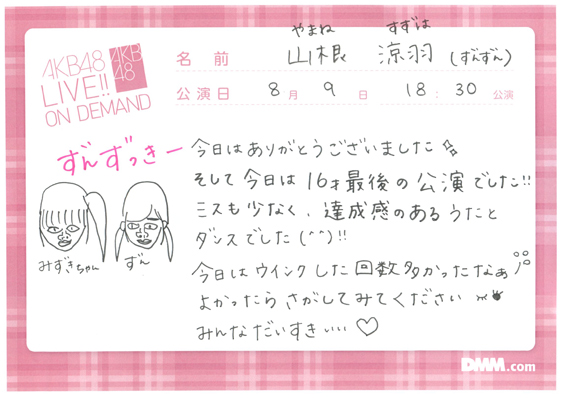 AKB48
LIVE!!
ON DEMAND
AKB
48
名前 やまね すずは
山根 涼羽 (ずんずん)
公演日 8月 9日 18:30公演
ずんずっきー
今日はありがとうございました
そして今日は16才最後の公演でした!!
ミスも少なく、達成感のあるうたと
ダンスでした(^^)!!
みずきちゃん ずん
今日はウインクした回数多かったなぁ
よかったらさがしてみてください
みんなだいすきぃぃぃ♡
DMM.com